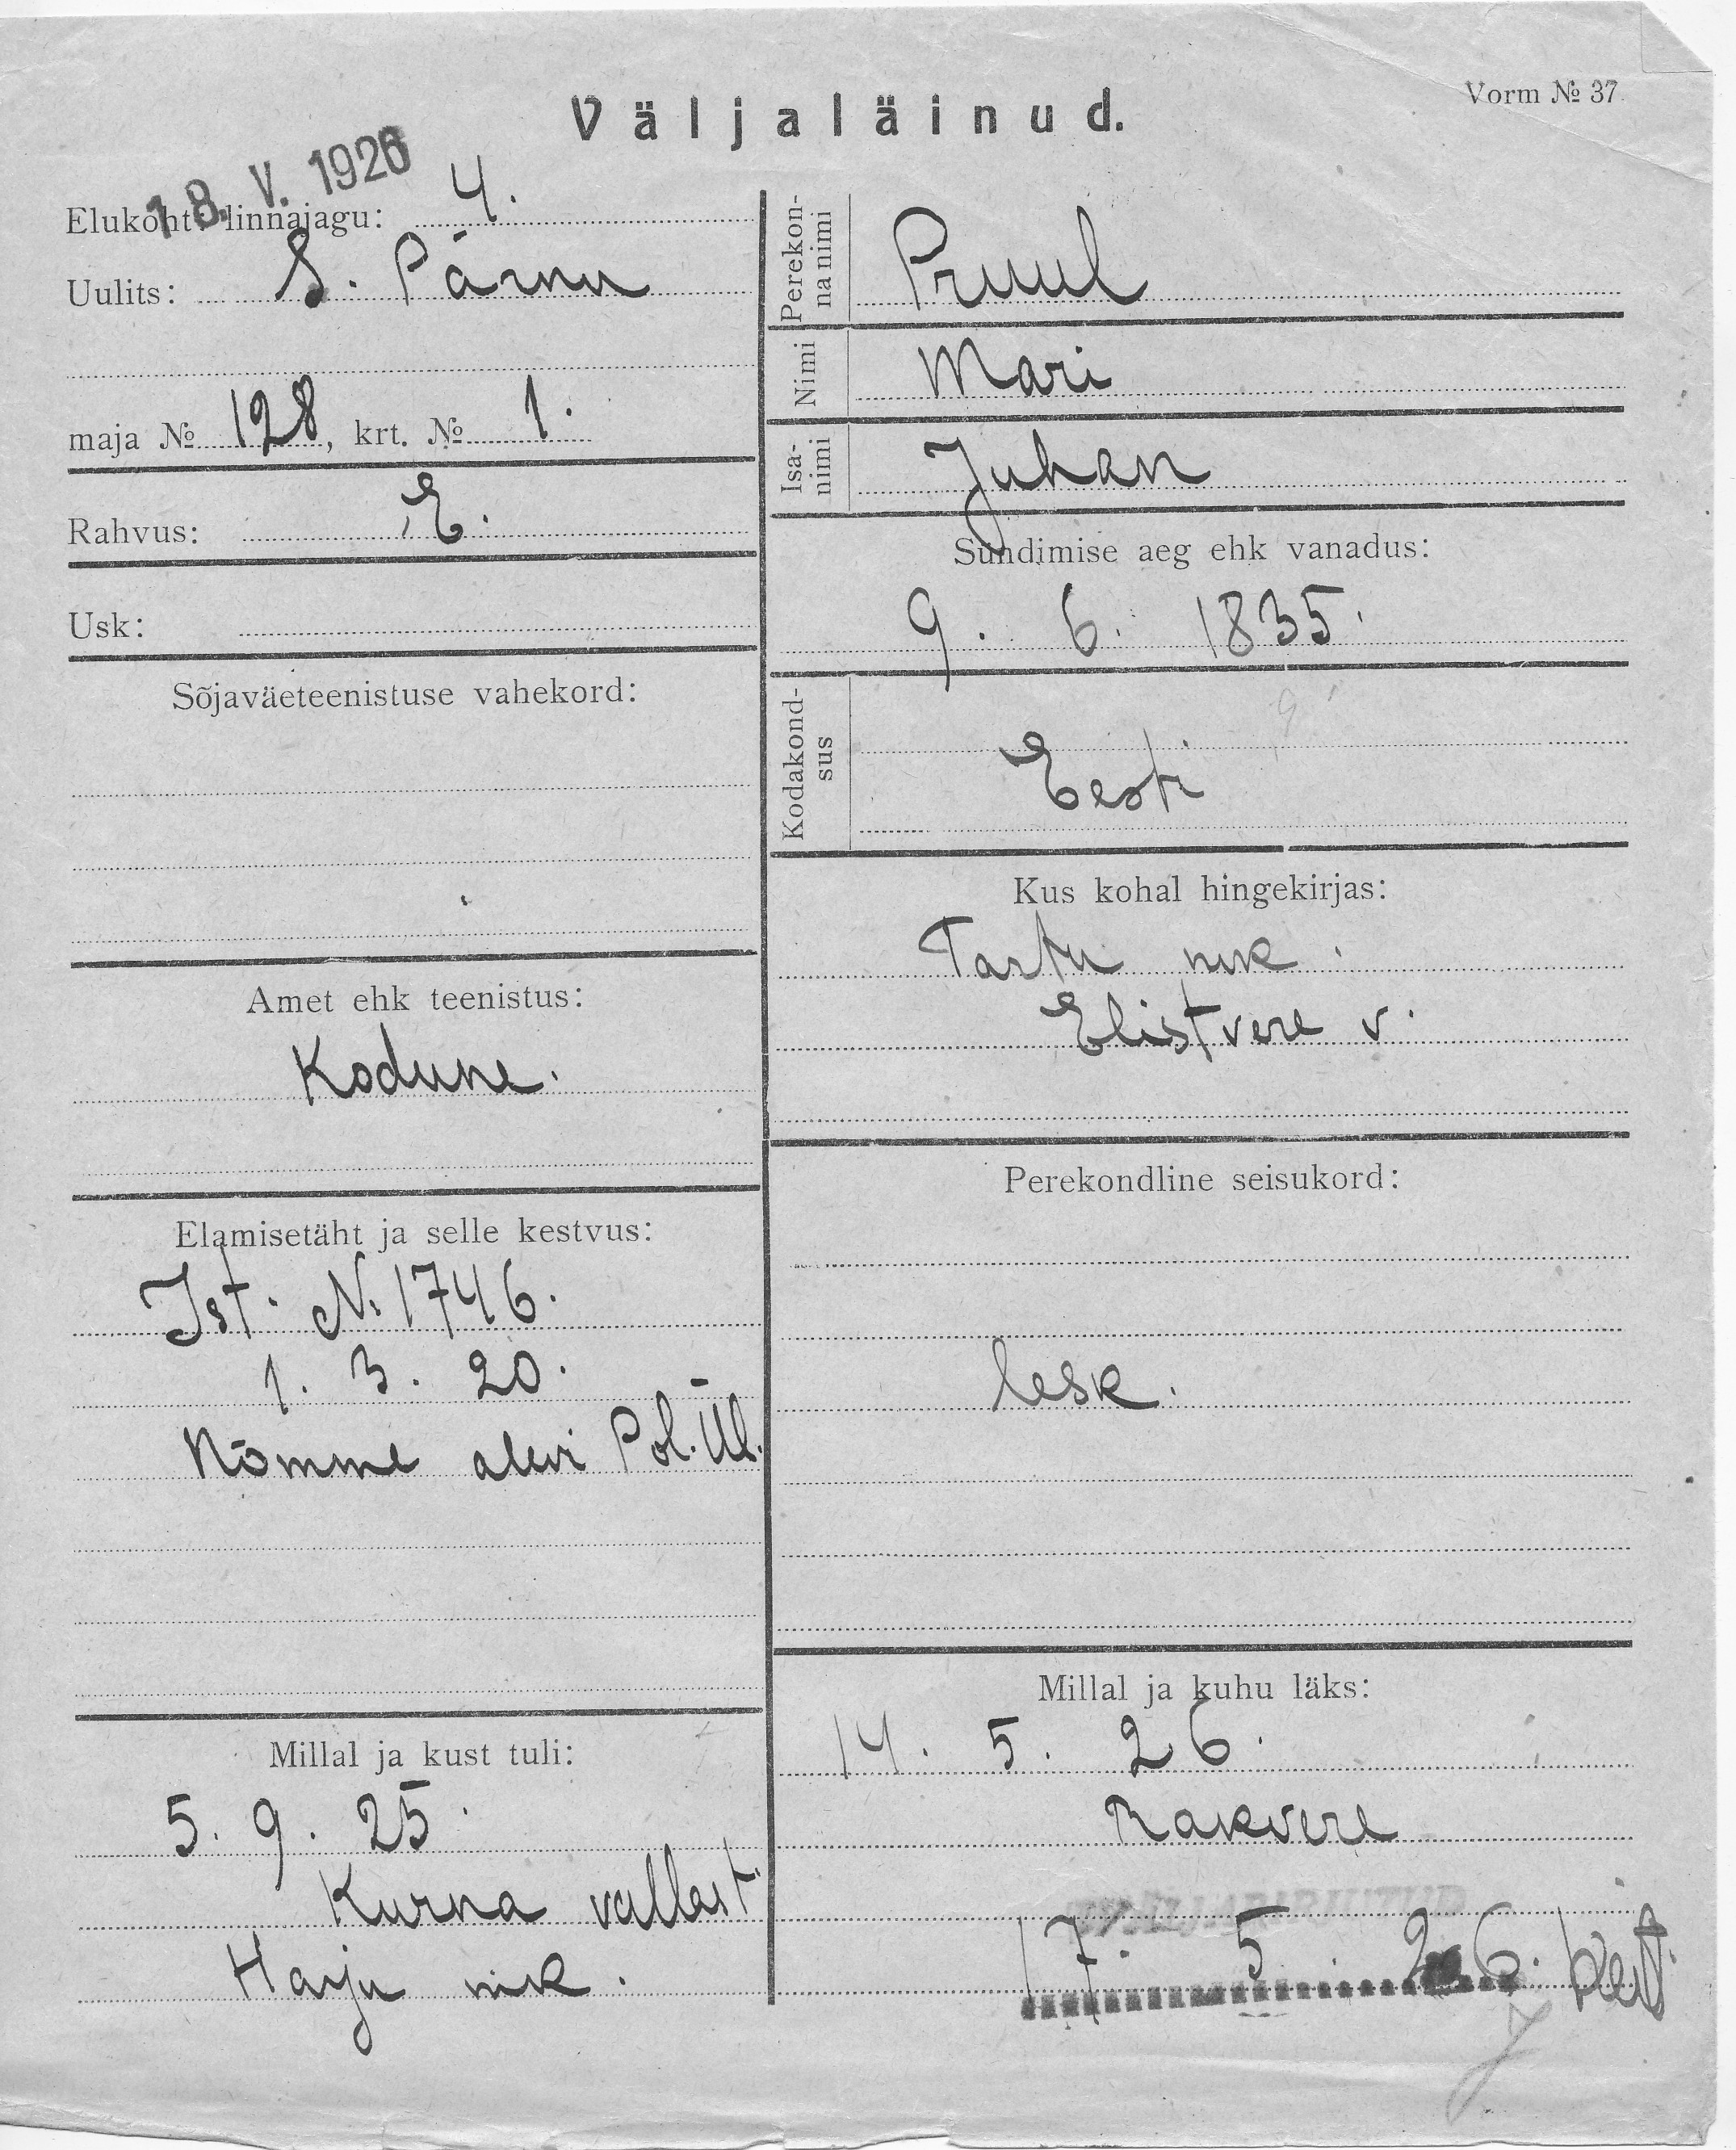 Vorm № 37
Väljaläinud.
18. V. 1926
Elukoht: linnajagu: 4.
Uulits: S. Pärnu
maja № 128, krt. № 1.
Rahvus: E.
Usk:
Sõjaväeteenistuse vahekord:
Amet ehk teenistus:
Kodune.
Elamisetäht ja selle kestvus:
Ist. № 1746.
1. 3. 20.
Nõmme alevi Pol. Ül.
Millal ja kust tuli:
5. 9. 25.
Kurna vallast
Harju mk.
Perekonnanimi Pruul
Nimi Mari
Isanimi Juhan
Sündimise aeg ehk vanadus:
9. 6. 1835.
Kodakondsus
Eesti
Kus kohal hingekirjas:
Tartu mk.
Elistvere v.
Perekondline seisukord:
lesk.
Millal ja kuhu läks:
14. 5. 26.
Rakvere
17. 5. 26.